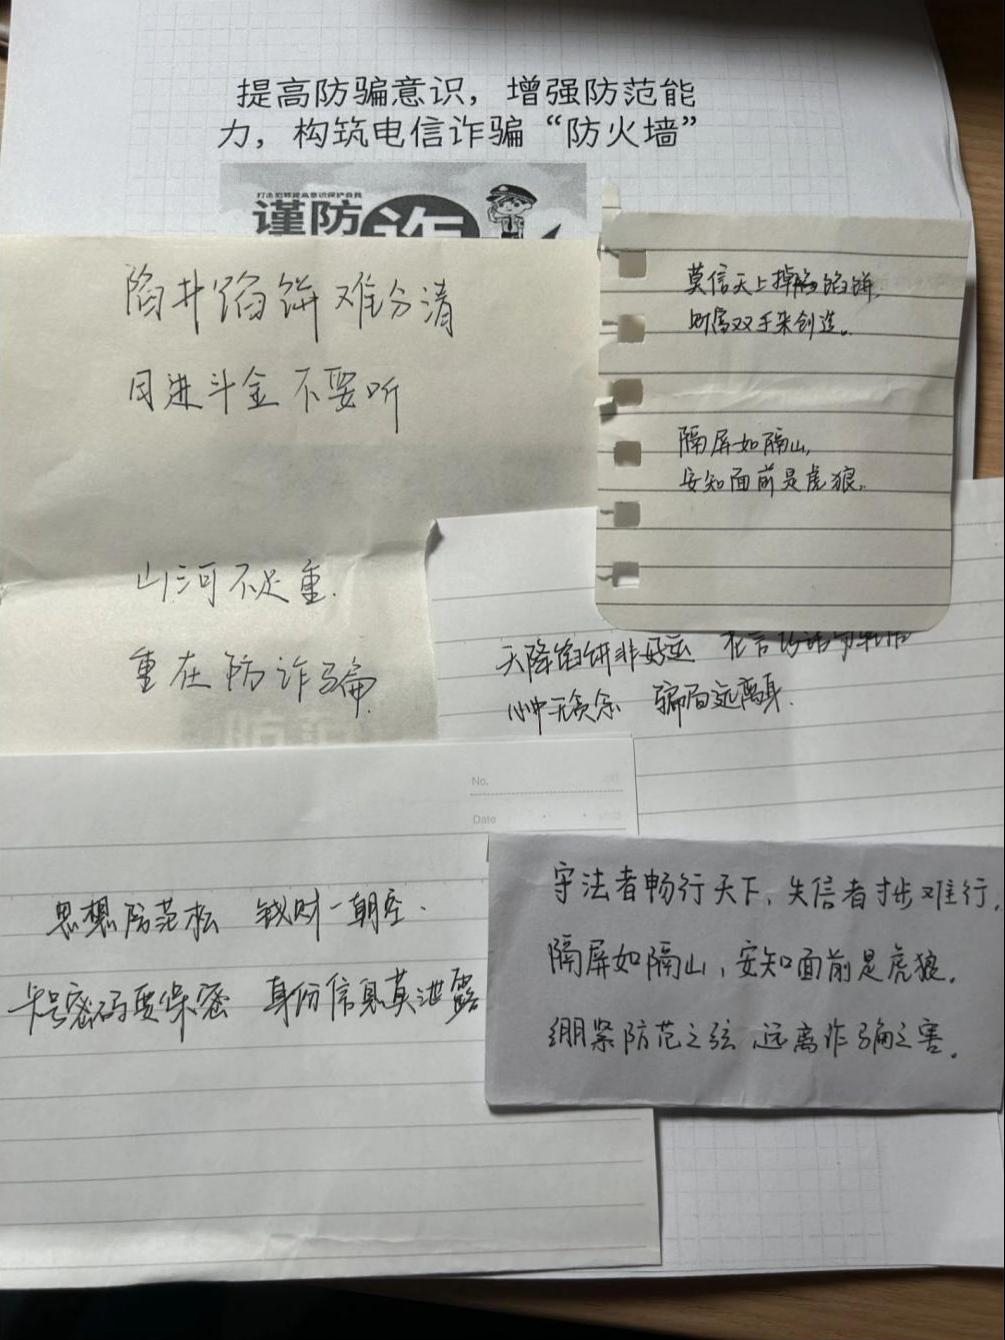 提高防骗意识，增强防范能
力，构筑电信诈骗“防火墙”
打击犯罪提高意识保护自我
谨防
诈
陷井馅饼难分清
日进斗金不要听
山河不足重.
重在防诈骗.
莫信天上掉馅饼,
财富双手来创造。
隔屏如隔山,
安知面前是虎狼.
天降馅饼非好运 花言巧语勿轻信
心中无贪念 骗局远离身.
No.
Date
思想防范松 钱财一朝空.
卡号密码要保密 身份信息莫泄露
守法者畅行天下,失信者寸步难行.
隔屏如隔山,安知面前是虎狼.
绷紧防范之弦 远离诈骗之害.